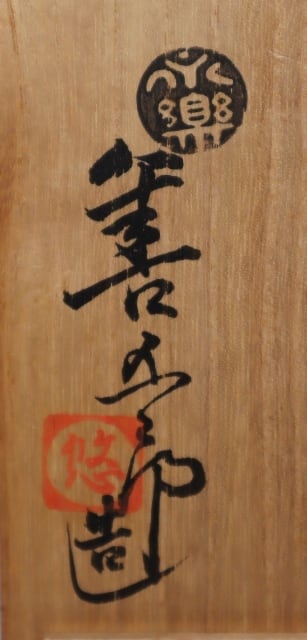 永樂
善五郎造
悠